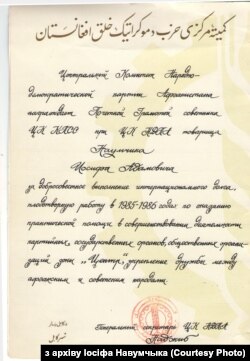 کمیته مرکزی حزب دموکراتیک خلق افغانستان
Центральный Комитет Народно-
демократической партии Афганистана
награждает Почетной Грамотой советника
ЦК КПСС при ЦК НДПА товарища
Наумчика
Иосифа Адамовича
за добросовестное выполнение интернационального долга,
плодотворную работу в 1985-1986 годах по оказанию
практической помощи в совершенствовании деятельности
партийных, государственных органов, общественных органи-
заций зоны "Центр", укрепление дружбы между
афганским и советским народами.
Генеральный секретарь ЦК НДПА
Наджиб
з архіву Іосіфа Навумчыка (Courtesy Photo)